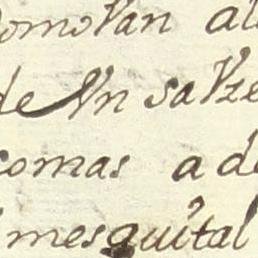 comoVan al
de Vn saVze
comas a de
mesquital